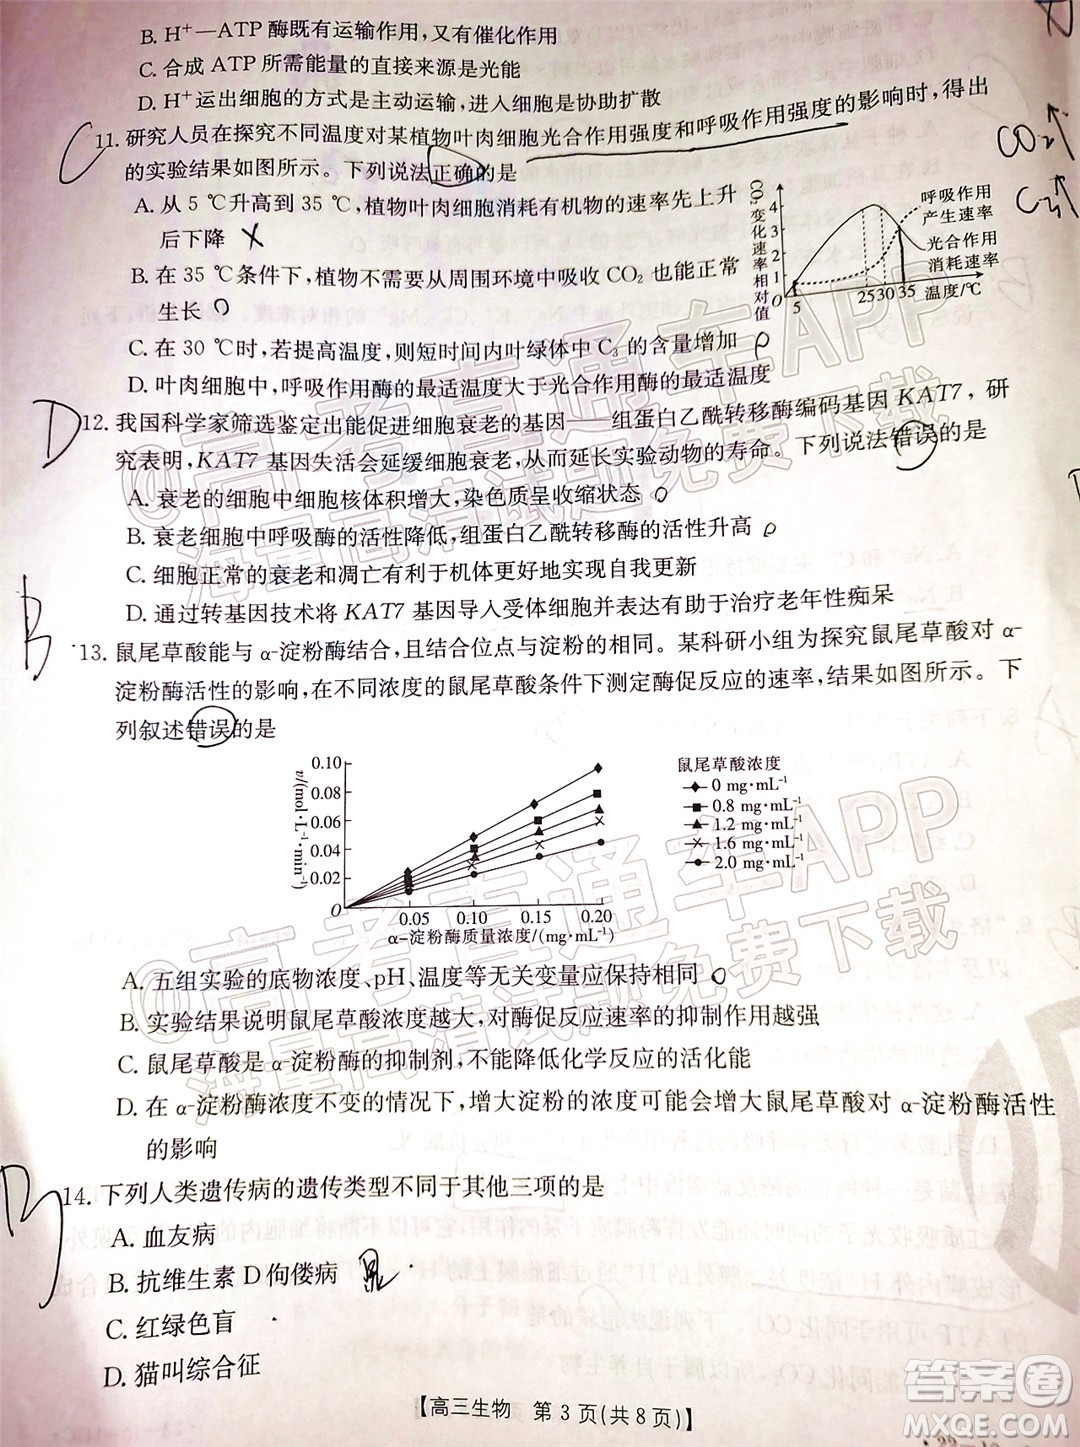 B. H⁺—ATP 酶既有运输作用,又有催化作用
C. 合成 ATP 所需能量的直接来源是光能
D. H⁺运出细胞的方式是主动运输,进入细胞是协助扩散
C
11. 研究人员在探究不同温度对某植物叶肉细胞光合作用强度和呼吸作用强度的影响时,得出
的实验结果如图所示。下列说法正确的是
CO₂↑
A. 从 5 ℃升高到 35 ℃,植物叶肉细胞消耗有机物的速率先上升
后下降 X
B. 在 35 ℃条件下,植物不需要从周围环境中吸收 CO₂ 也能正常
生长
C. 在 30 ℃时,若提高温度,则短时间内叶绿体中 C₃ 的含量增加
D. 叶肉细胞中,呼吸作用酶的最适温度大于光合作用酶的最适温度
CO₂变化速率相对值
4
3
2
1
0
5
25 30 35 温度/℃
呼吸作用
产生速率
光合作用
消耗速率
D
12. 我国科学家筛选鉴定出能促进细胞衰老的基因——组蛋白乙酰转移酶编码基因 KAT7,研
究表明,KAT7 基因失活会延缓细胞衰老,从而延长实验动物的寿命。下列说法错误的是
A. 衰老的细胞中细胞核体积增大,染色质呈收缩状态
B. 衰老细胞中呼吸酶的活性降低,组蛋白乙酰转移酶的活性升高
C. 细胞正常的衰老和凋亡有利于机体更好地实现自我更新
D. 通过转基因技术将 KAT7 基因导入受体细胞并表达有助于治疗老年性痴呆
B
13. 鼠尾草酸能与 α-淀粉酶结合,且结合位点与淀粉的相同。某科研小组为探究鼠尾草酸对 α-
淀粉酶活性的影响,在不同浓度的鼠尾草酸条件下测定酶促反应的速率,结果如图所示。下
列叙述错误的是
v/(mol·L⁻¹·min⁻¹)
0.10
0.08
0.06
0.04
0.02
0
0.05 0.10 0.15 0.20
α-淀粉酶质量浓度/(mg·mL⁻¹)
鼠尾草酸浓度
0 mg·mL⁻¹
0.8 mg·mL⁻¹
1.2 mg·mL⁻¹
1.6 mg·mL⁻¹
2.0 mg·mL⁻¹
A. 五组实验的底物浓度、pH、温度等无关变量应保持相同
B. 实验结果说明鼠尾草酸浓度越大,对酶促反应速率的抑制作用越强
C. 鼠尾草酸是 α-淀粉酶的抑制剂,不能降低化学反应的活化能
D. 在 α-淀粉酶浓度不变的情况下,增大淀粉的浓度可能会增大鼠尾草酸对 α-淀粉酶活性
的影响
14. 下列人类遗传病的遗传类型不同于其他三项的是
A. 血友病
B. 抗维生素 D 佝偻病 显
C. 红绿色盲
D. 猫叫综合征
【高三生物 第 3 页(共 8 页)】
@高考直通车APP
海量高清试题免费下载
@高考直通车APP
海量高清试题免费下载
答案圈
MXQE.COM